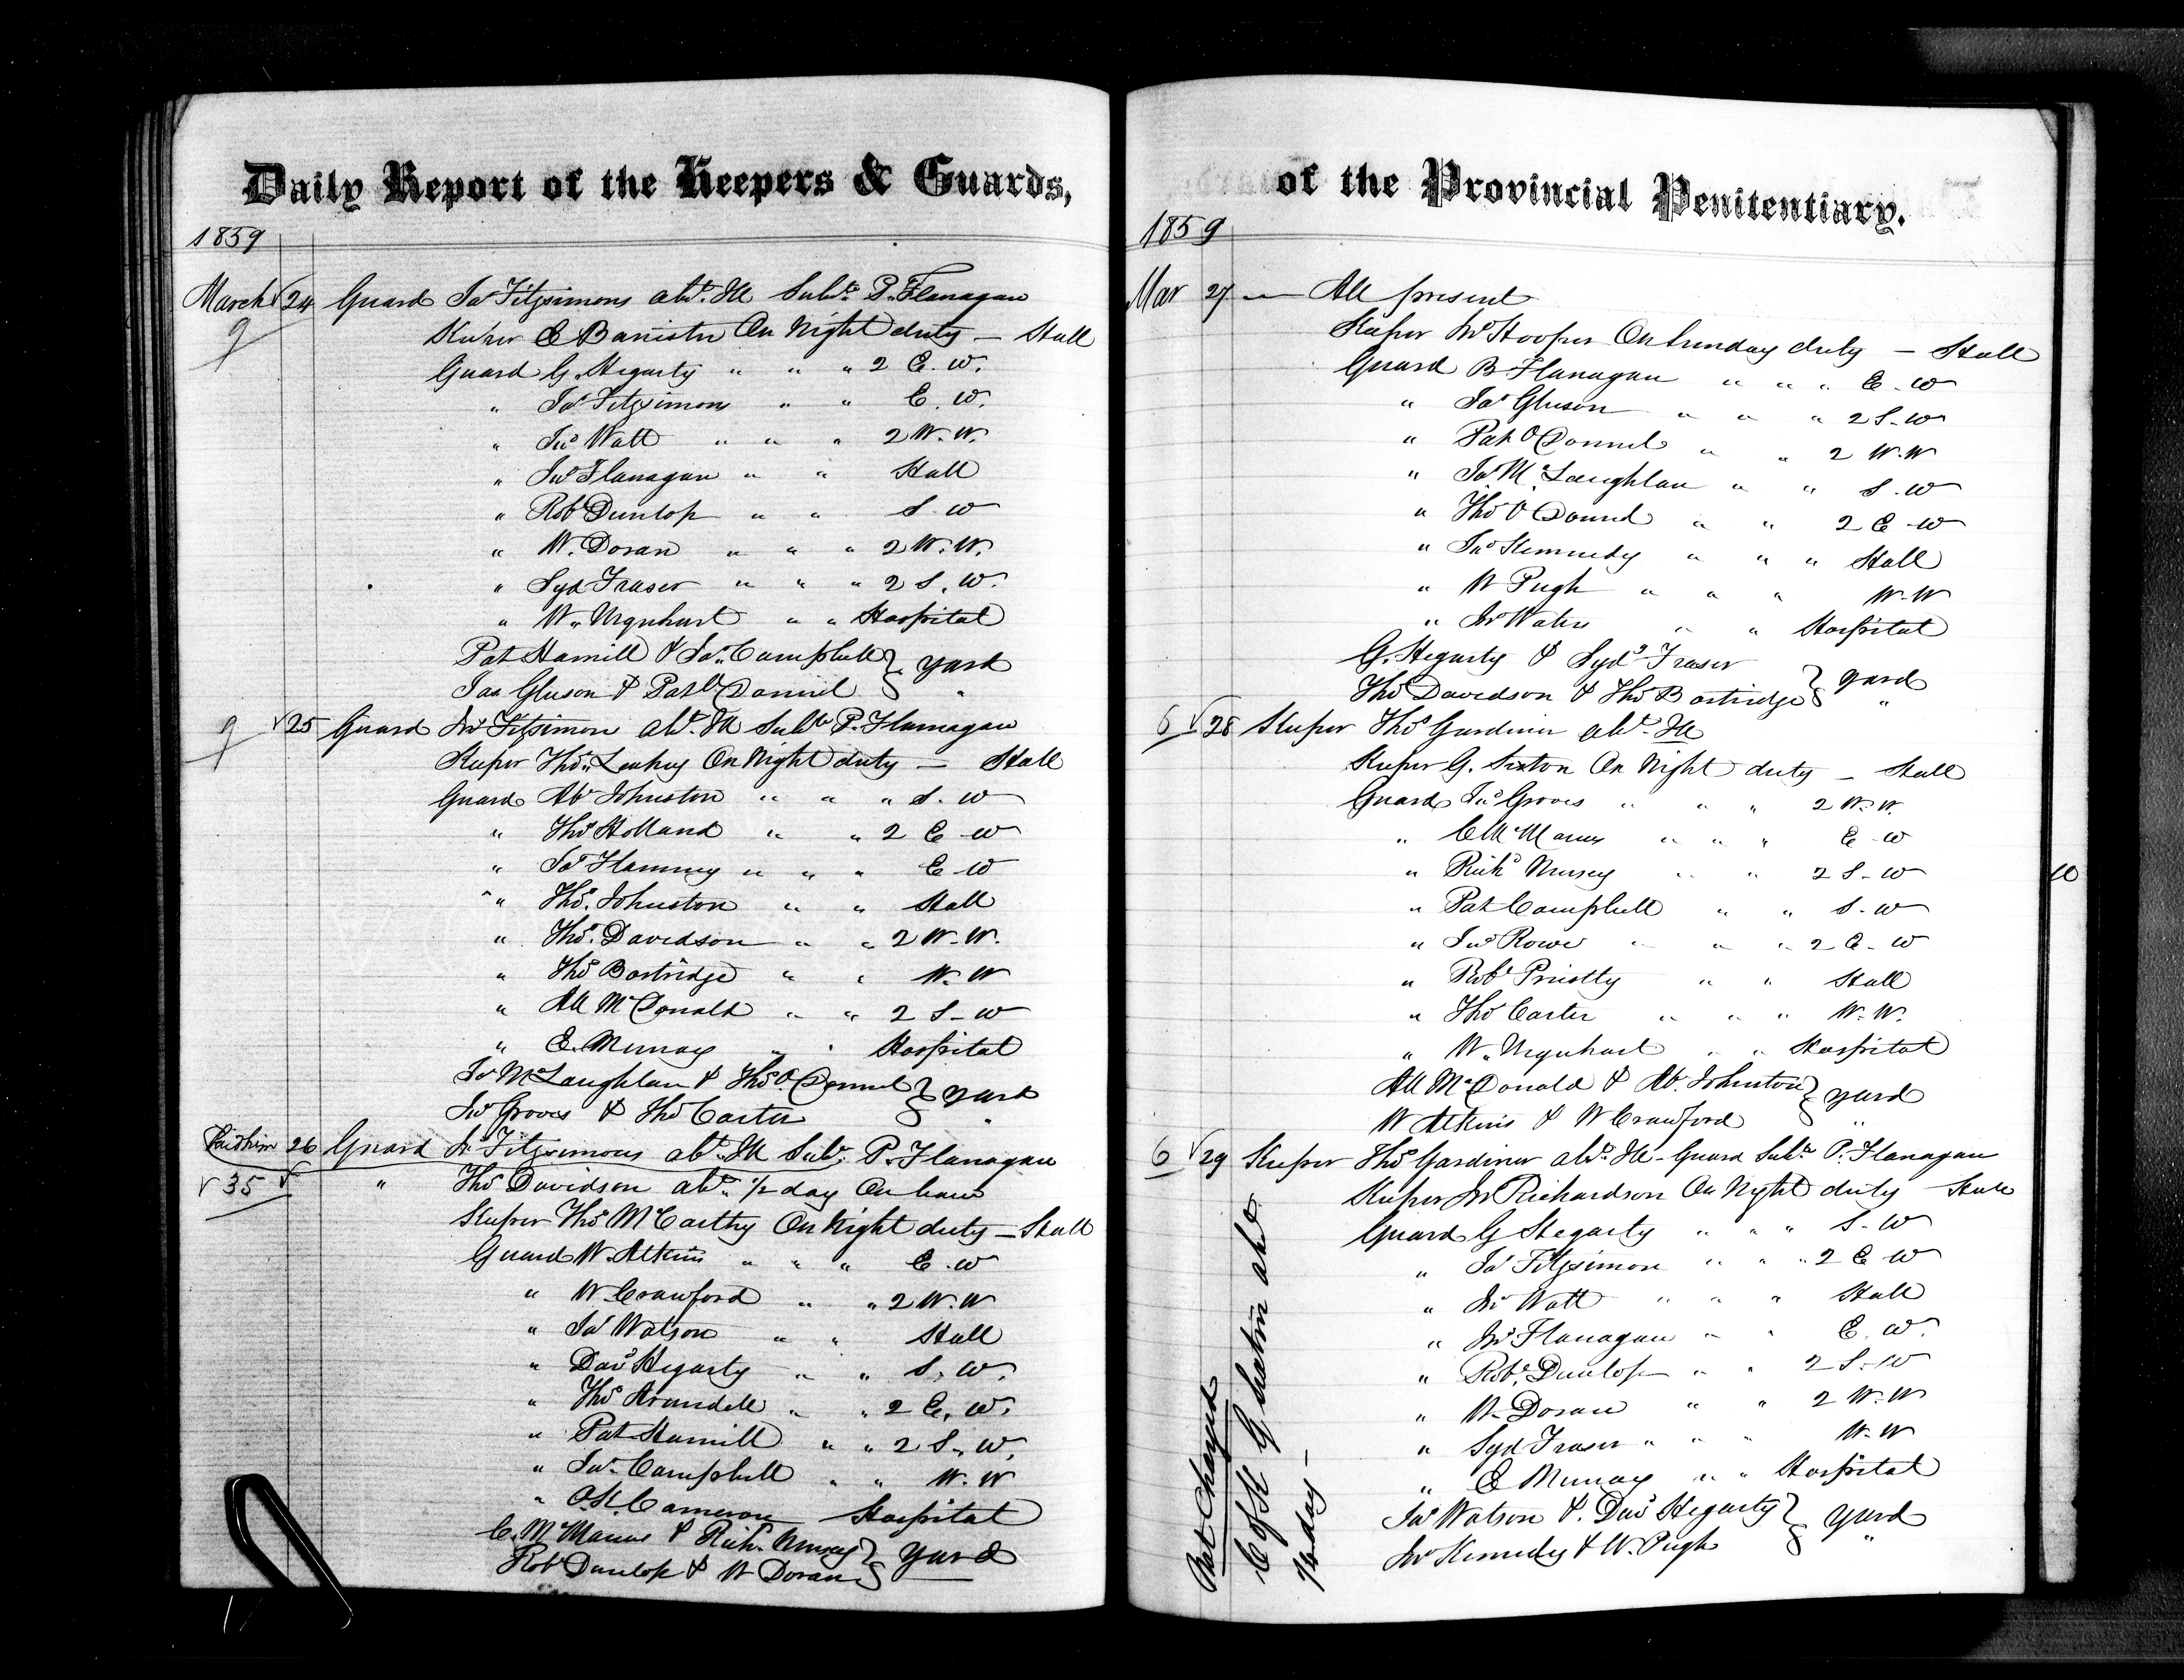 Daily Report of the Keepers & Guards,
1859
March 24 Guard Jas Fitzsimons abt. Ill Subte P. Flanagan
9
Keeper E Banister On Night duty - Hall
Guard G. Hegarty " " " 2 E. W.
" Jas Fitzsimons " " E. W.
" Jno Watt " " " 2 W. W.
" Jno Flanagan " " Hall
" Robt Dunlop " " S. W
" W. Doran " " " 2 W. W.
" Syd Fraser " " " 2 S. W.
" W. Urquhart " " Hospital
Pat Hamill & Jas. Campbell } yard
Jas Gleeson & Pat O'Donnel } "
9
25 Guard Jno Fitzsimon abt. Ill Subte P. Flannagan
Keeper Thos. Leahey On Night duty - Hall
Guard Ab Johnston " " " S. W
" Thos Holland " " 2 E - W
" Jas Flanney " " " E - W
" Thos. Johnston " " Hall
" Thos. Davidson " " 2 W - W.
" Thos Bostridge " " W. W
" All McDonald " " 2 S - W
" E. Murray " " Hospital
Jas McLaughlan & Thos O'Donnel } yard
Jno Groves & Thos Carter } "
Paid him 26 Guard Jno Fitzsimons abt. Ill Subt. P. Flanagan
35 " Thos Davidson abt. 1/2 day On leave
Keeper Thos McCarthy On Night duty - Hall
Guard W. Atkins " " " E. W
" W. Crawford " " 2 W. W
" Jas Watson " " Hall
" Davd Hegarty " " S. W.
" Thos Arundell " " 2 E. W.
" Pat Hamill " " 2 S. W.
" Jas. Campbell " " W. W
" Cameron Hospital
C. McManus & Richd. Nursey } yard
Robt Dunlop & W Doran }
of the Provincial Penitentiary.
1859
Mar 27 - All present
Keeper Jno Hooper On Sunday duty - Hall
Guard B. Flanagan " " " E - W
" Jas Gleeson " " " 2 S - W
" Pat O'Donnel " " 2 W. W
" Jas McLaughlan " " S. W
" Thos O'Donnel " " 2 E - W
" Jno Kennedy " " " Hall
" W Pugh " " " W. W
" Jno " " Hospital
G. Hegarty & Sydy Fraser } yard
Thos Davidson & Thos Bostridge } "
6 28 Keeper Thos Gardiner abt. Ill
Keeper G. Sexton On Night duty - Hall
Guard Jno Groves " " " 2 W. W.
" C McManus " " " E - W
" Richd Nursey " " 2 S - W
" Pat Campbell " " S. W
" Jno Rowe " " " 2 E - W
" Robt Priestly " " Hall
" Thos Carter " " " W. W.
" W. Urquhart " " Hospital
All McDonald & Ab. Johnston } yard
W Atkins & W Crawford } "
6 29 Keeper Thos Gardiner abt. Ill - Guard Subte P. Flanagan
Keeper Jno Richardson On Night duty - Hall
Guard G Hegarty " " " S. W
" Jas Fitzsimon " " " 2 E W
" Jno Watt " " " Hall
" Jno Flanagan " " E. W.
" Robt. Dunlop " " 2 S. W
" W. Doran " " 2 W. W
" Syd Fraser " " " W. W
" E Murray " " Hospital
Jas Watson & Davd Hegarty } yard
Jno Kennedy & W. Pugh } "
Not Charged
C of K G Sexton abt
1/2 day -
10